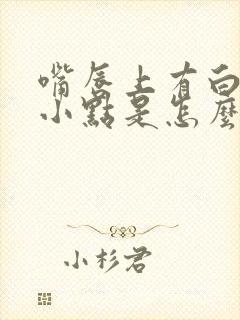 嘴唇上有白
小點是怎麼
小杉君